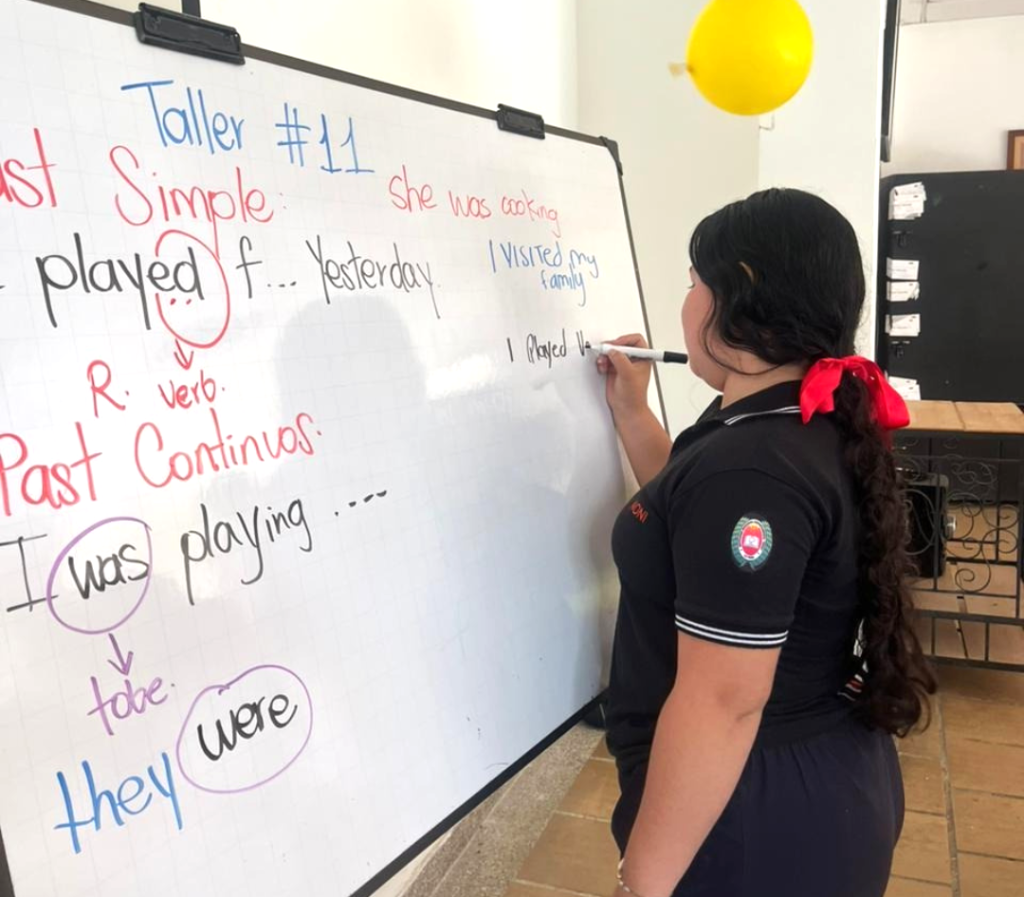 Taller #11
ast Simple:
she was cooking
played f... Yesterday.
I VISITED my
family
I Played
R. verb.
Past Continuos:
I was playing ....
tobe.
they were